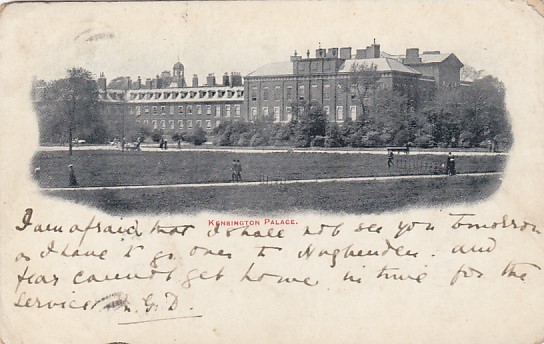 KENSINGTON PALACE.
I am afraid that I shall not see you tomorrow
as I have to go over to and
cannot get home in time for the
service. G.D.